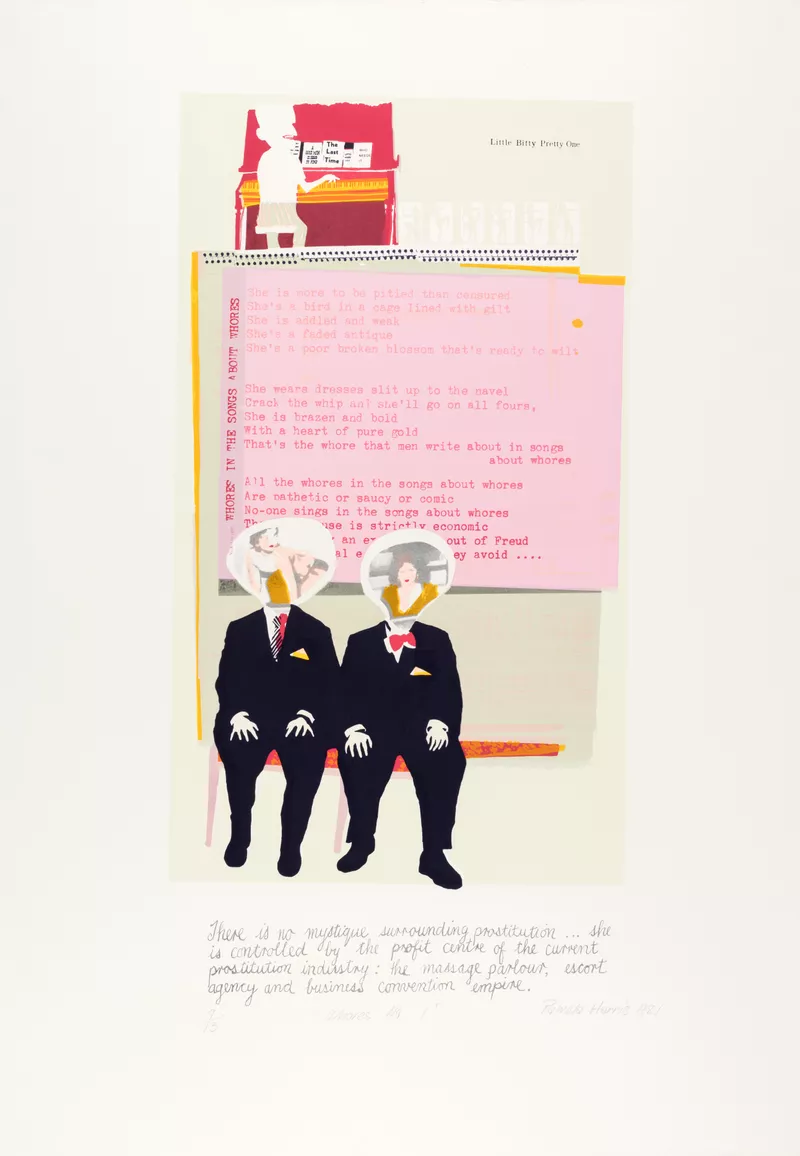 Little Bitty Pretty One
The
Last
Time
WHORES IN THE SONGS ABOUT WHORES
She is more to be pitied than censured
She's a bird in a cage lined with gilt
She is addled and weak
She's a faded antique
She's a poor broken blossom that's ready to wilt
She wears dresses slit up to the navel
Crack the whip and she'll go on all fours,
She is brazen and bold
With a heart of pure gold
That's the whore that men write about in songs
about whores
All the whores in the songs about whores
Are pathetic or saucy or comic
No-one sings in the songs about whores
use is strictly economic
an out of Freud
al ey avoid ....
There is no mystique surrounding prostitution ... she
is controlled by the profit centre of the current
prostitution industry: the massage parlour, escort
agency and business convention empire.
Pamela Harris